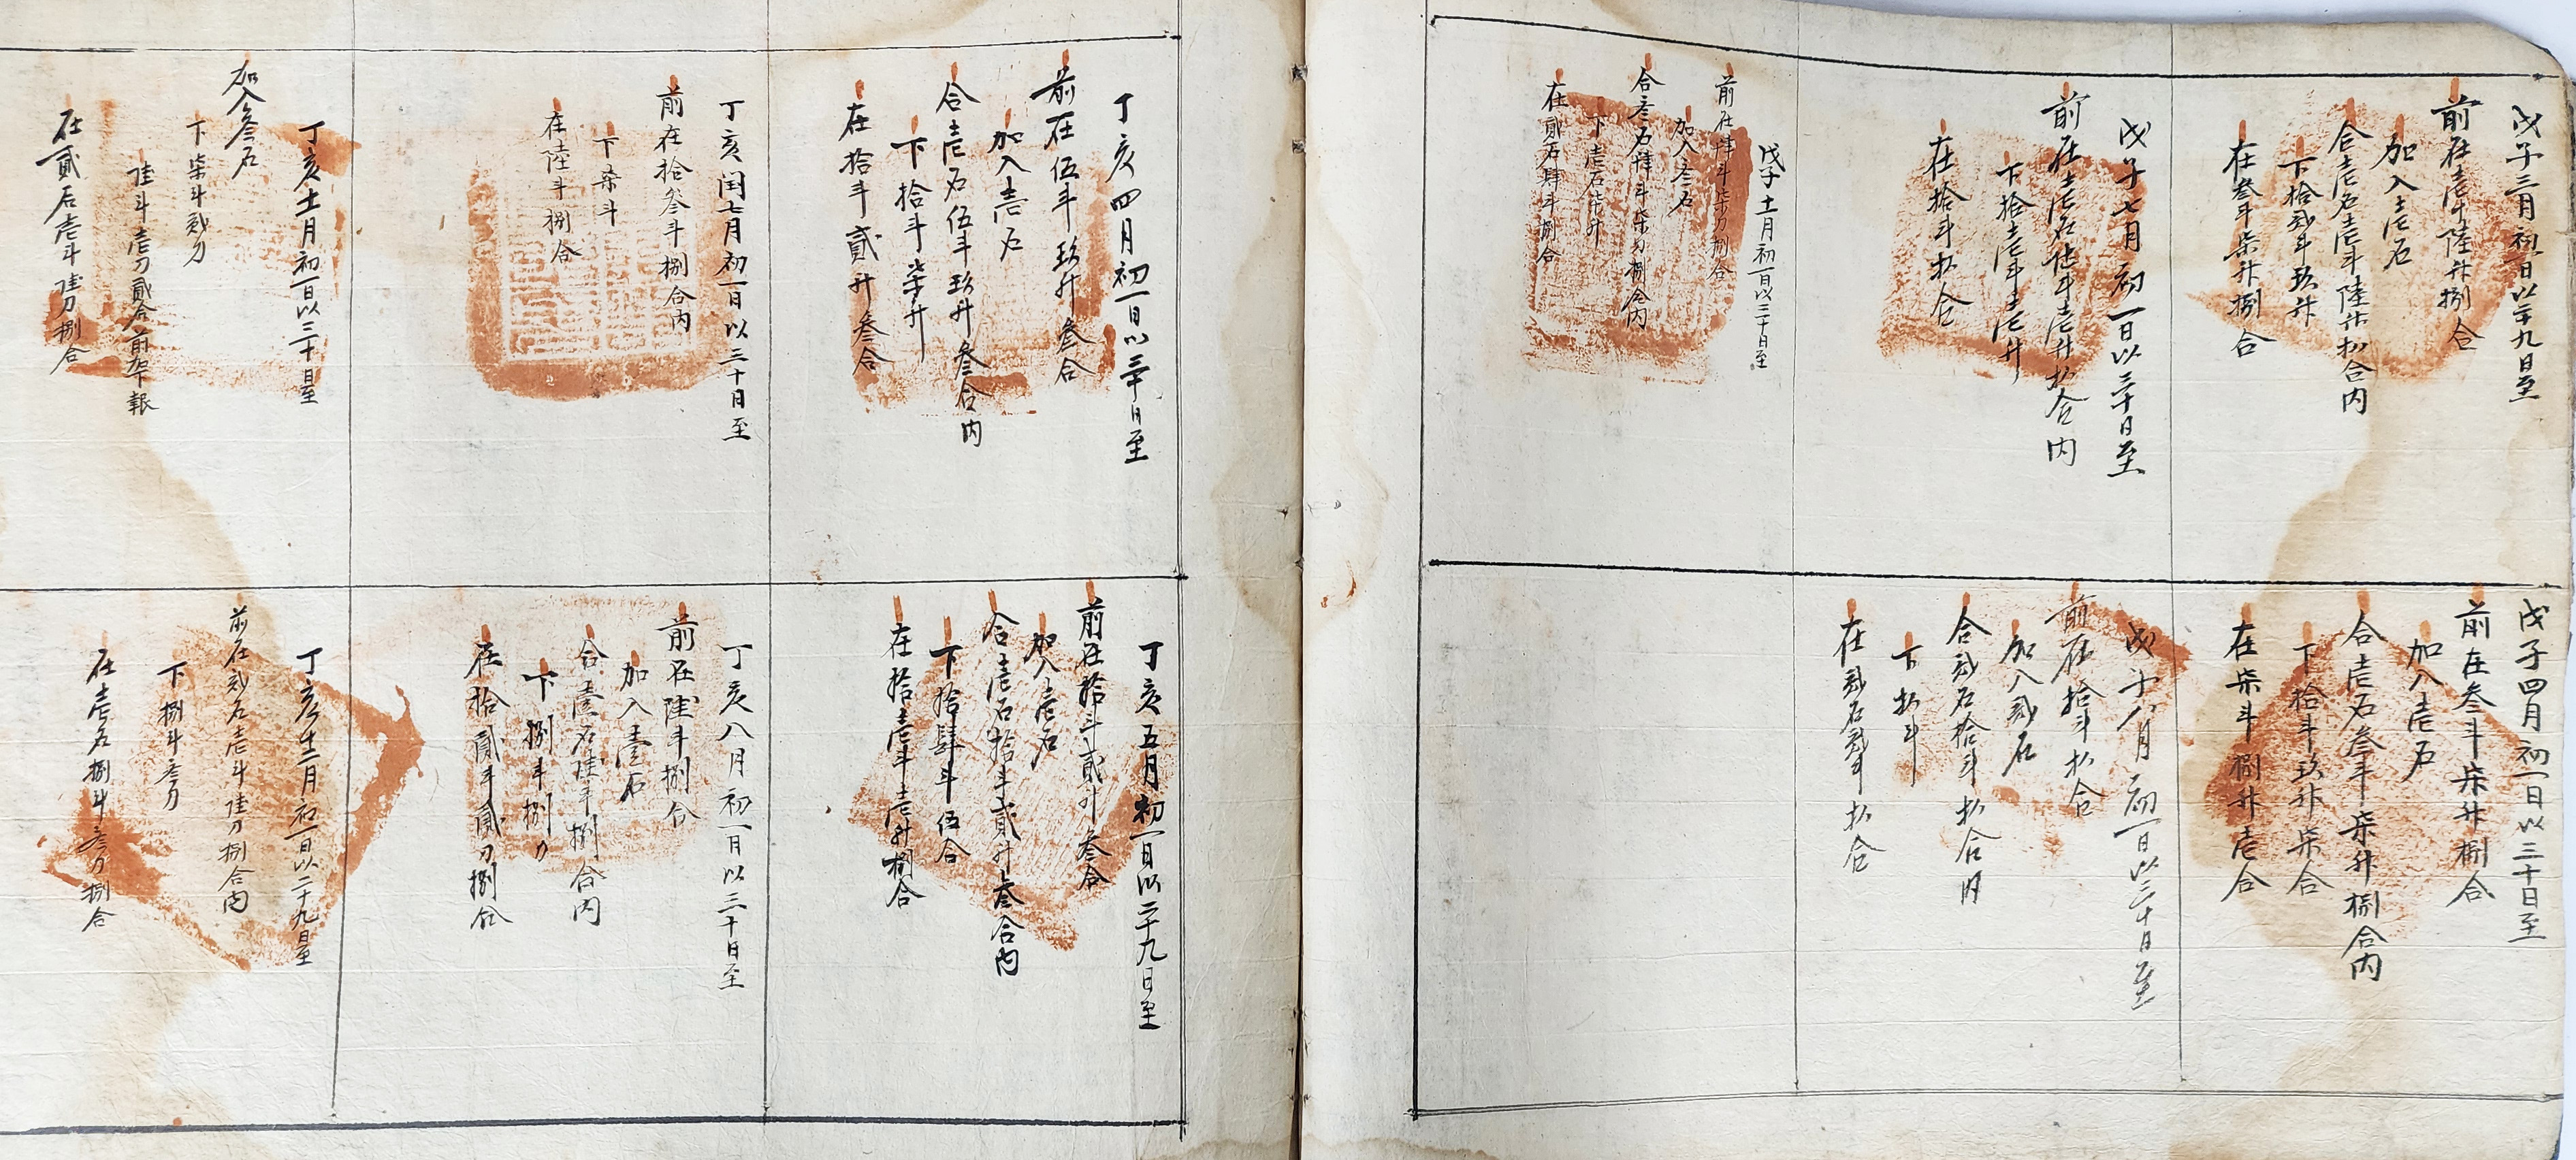 戊子三月初一日以二十九日至
前在壱斗陸升捌合
加入壱石
合壱石壱斗陸升扒合内
下拾貳斗玖升
在叁斗柒升捌合
戊子七月初一日以三十日至
前在壱石陸斗壱升扒合内
下拾壱斗壱升
在拾斗扒合
戊子十一月初一日以三十日至
前在肆斗柒刀捌合
加入叁石
合叁石肆斗柒刀捌合内
下壱石柒升
在貳石肆斗捌合
戊子四月初一日以三十日至
前在叁斗柒升捌合
加入壱石
合壱石叁斗柒升捌合内
下拾斗玖升柒合
在柒斗捌升壱合
戊子八月初一日以三十日至
前在拾斗扒合
加入貳石
合貳石拾斗扒合内
下扒斗
在貳石貳斗扒合
丁亥四月初一日以三十日至
前在伍斗玖升叁合
加入壱石
合壱石伍斗玖升叁合内
下拾斗柒升
在拾斗貳升叁合
丁亥閏七月初一日以三十日至
前在拾叁斗捌合内
下柒斗
在陸斗捌合
丁亥十一月初一日以三十日至
加入叁石
下柒斗貳刀
陸斗壱刀貳合前架下報
在貳石壱斗陸刀捌合
丁亥五月初一日以二十九日至
前在拾斗貳升叁合
加入壱石
合壱石拾斗貳升叁合内
下拾肆斗伍合
在拾壱斗壱升捌合
丁亥八月初一日以三十日至
前在陸斗捌合
加入壹石
合壹石陸斗捌合内
下捌斗捌刀
在拾貳斗貳刀捌合
丁亥十二月初一日以二十九日至
前在貳石壱斗陸刀捌合内
下捌斗叁刀
在壱石捌斗叁刀捌合